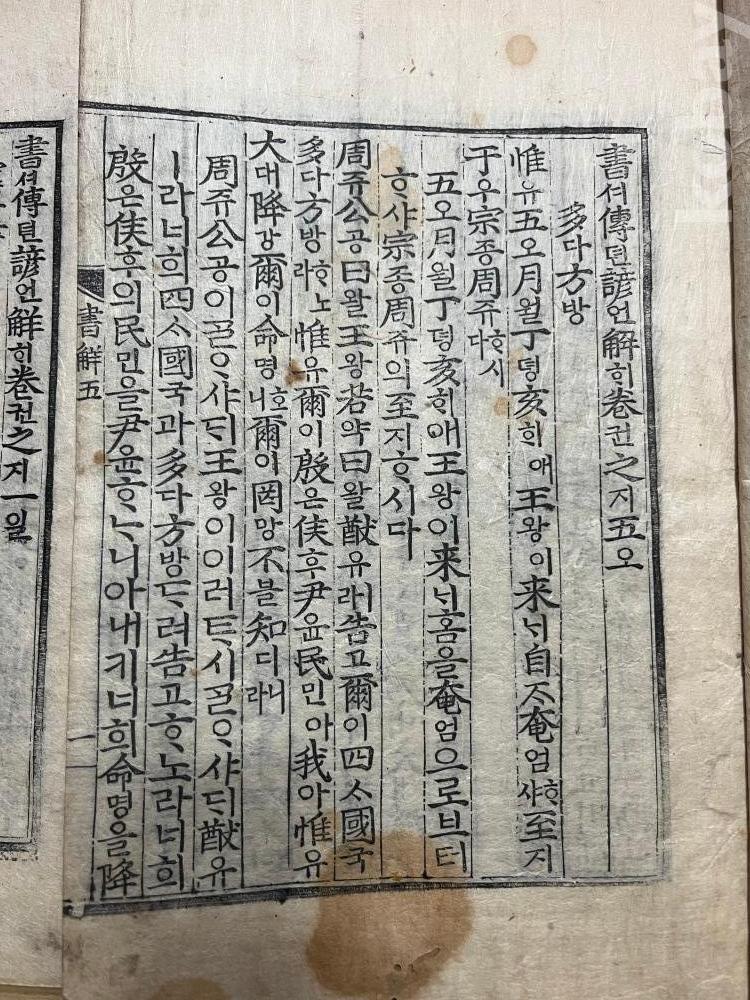 書셔傳뎐諺언解ᄒᆡ卷권之지五오
多다方방
惟유五오月월丁뎡亥ᄒᆡ애王왕이来ᄂᆡ自ᄌᆞ奄엄ᄒᆞ샤至지
于우宗종周쥬ᄒᆞ시다
五오月월丁뎡亥ᄒᆡ애王왕이来ᄂᆡ홈을奄엄으로브터
ᄒᆞ샤宗종周쥬의至지ᄒᆞ시다
周쥬公공曰왈王왕若약曰왈猷유ㅣ라告고爾이四ᄉᆞ國국
多다方방ᄒᆞ노라惟유爾이殷은侯후尹윤民민아我아惟유
大대降강爾이命명호니爾이罔망不블知디니라
周쥬公공이ᄀᆞᆯᄋᆞ샤ᄃᆡ王왕이이러ᄐᆞ시ᄀᆞᆯᄋᆞ샤ᄃᆡ猷유
ㅣ라너희四ᄉᆞ國국과多다方방ᄃᆞ려告고ᄒᆞ노라너희
殷은侯후의民민을尹윤ᄒᆞᄂᆞ니아내키너희命명을降
書解五 一
書셔傳뎐諺언解ᄒᆡ卷권之지一일